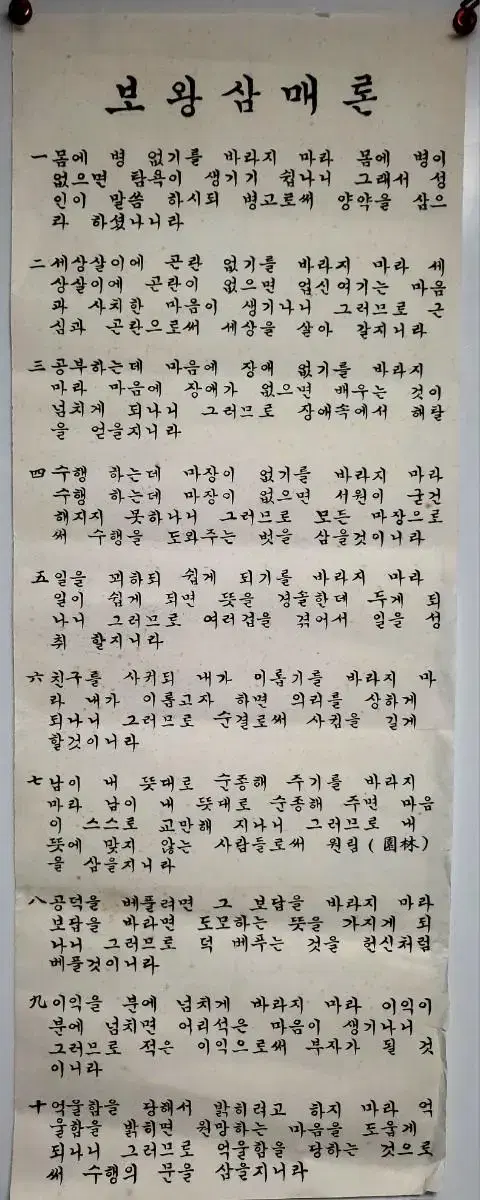 보왕삼매론
一 몸에 병 없기를 바라지 마라 몸에 병이
없으면 탐욕이 생기기 쉽나니 그래서 성
인이 말씀 하시되 병고로써 양약을 삼으
라 하셨나니라
二 세상살이에 곤란 없기를 바라지 마라 세
상살이에 곤란이 없으면 업신여기는 마음
과 사치한 마음이 생기나니 그러므로 근
심과 곤란으로써 세상을 살아 갈지니라
三 공부하는데 마음에 장애 없기를 바라지
마라 마음에 장애가 없으면 배우는 것이
넘치게 되나니 그러므로 장애속에서 해탈
을 얻을지니라
四 수행 하는데 마장이 없기를 바라지 마라
수행 하는데 마장이 없으면 서원이 굳건
해지지 못하나니 그러므로 모든 마장으로
써 수행을 도와주는 벗을 삼을것이니라
五 일을 꾀하되 쉽게 되기를 바라지 마라
일이 쉽게 되면 뜻을 경솔한데 두게 되
나니 그러므로 여러겁을 겪어서 일을 성
취 할지니라
六 친구를 사귀되 내가 이롭기를 바라지 마
라 내가 이롭고자 하면 의리를 상하게
되나니 그러므로 순결로써 사귐을 길게
할것이니라
七 남이 내 뜻대로 순종해 주기를 바라지
마라 남이 내 뜻대로 순종해 주면 마음
이 스스로 교만해 지나니 그러므로 내
뜻에 맞지 않는 사람들로써 원림(園林)
을 삼을지니라
八 공덕을 베풀려면 그 보답을 바라지 마라
보답을 바라면 도모하는 뜻을 가지게 되
나니 그러므로 덕 베푸는 것을 헌신처럼
베풀것이니라
九 이익을 분에 넘치게 바라지 마라 이익이
분에 넘치면 어리석은 마음이 생기나니
그러므로 적은 이익으로써 부자가 될 것
이니라
十 억울함을 당해서 밝히려고 하지 마라 억
울함을 밝히면 원망하는 마음을 도웁게
되나니 그러므로 억울함을 당하는 것으로
써 수행의 문을 삼을지니라